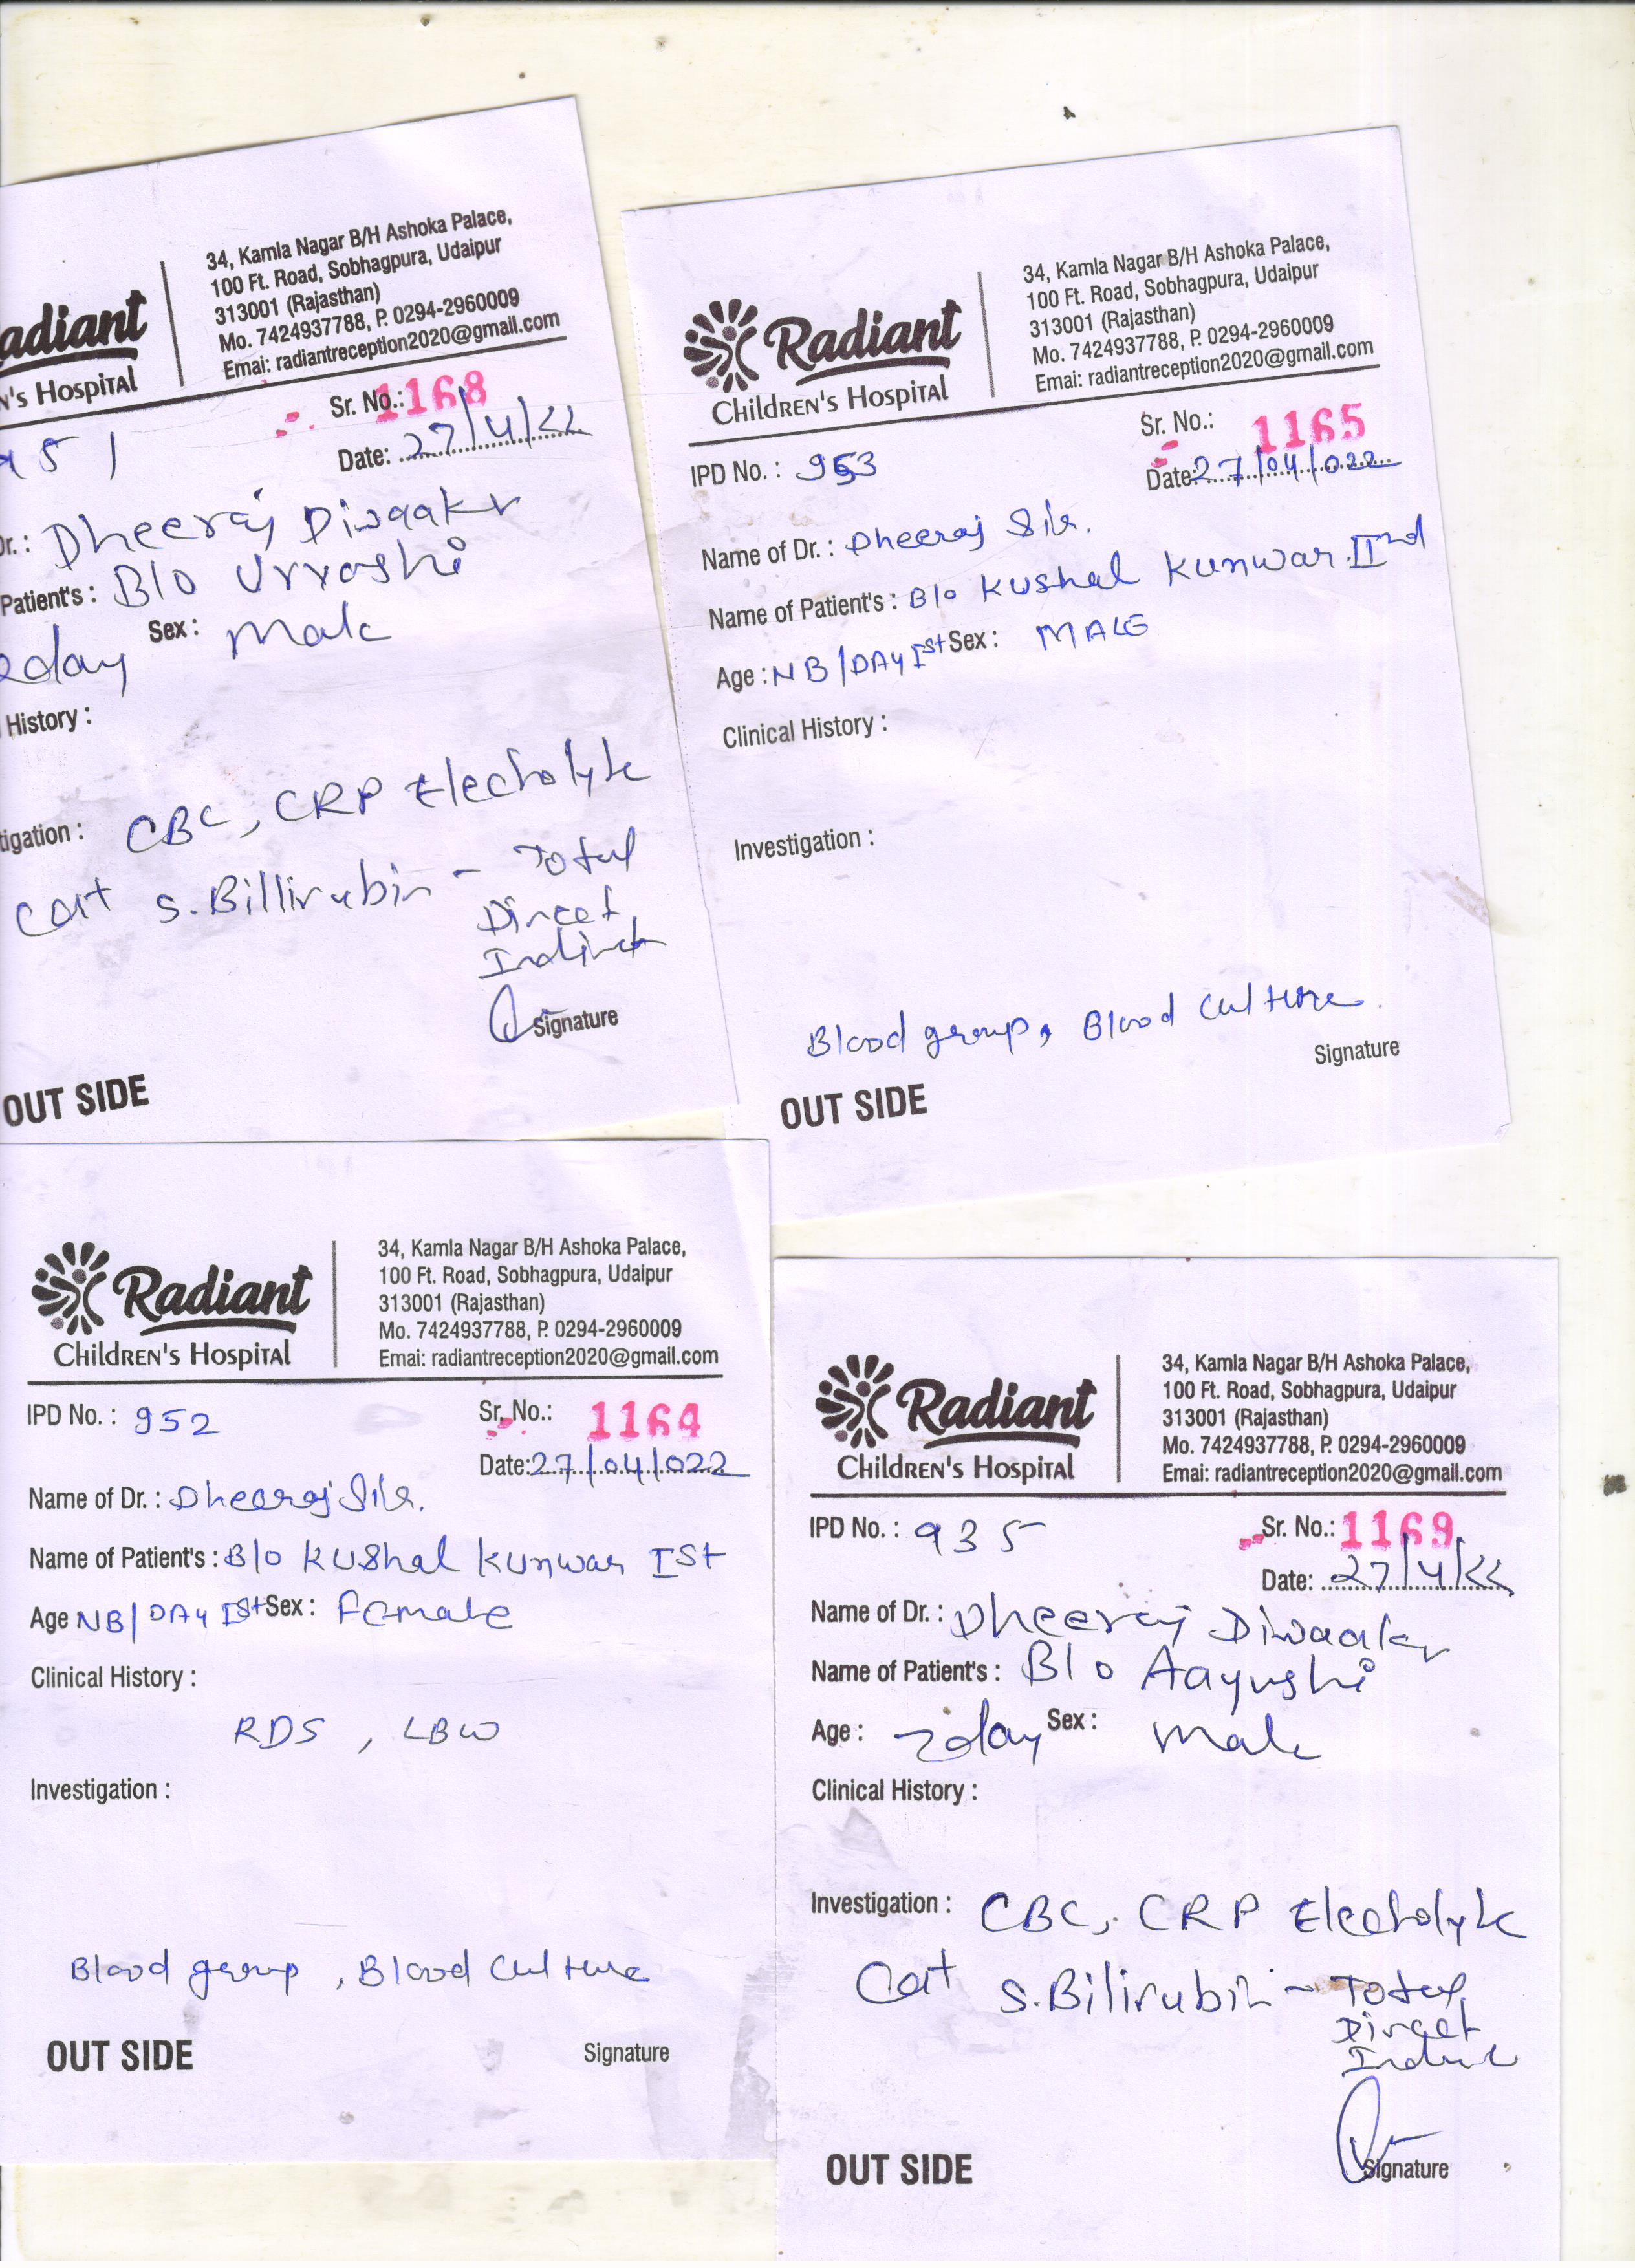 adiant
n's Hospital
34, Kamla Nagar B/H Ashoka Palace,
100 Ft. Road, Sobhagpura, Udaipur
313001 (Rajasthan)
Mo. 7424937788, P. 0294-2960009
Emai: radiantreception2020@gmail.com
Sr. No.: 1168
951
Date: 27/4/22
Dr.: Dheeraj Diwaakr
Patient's: B/o Urvashi
2day Sex: Male
History:
tigation: CBC, CRP Electrolyte
S. Billirubin - Total
Direct
Indirect
Signature
OUT SIDE
Radiant
Children's Hospital
34, Kamla Nagar B/H Ashoka Palace,
100 Ft. Road, Sobhagpura, Udaipur
313001 (Rajasthan)
Mo. 7424937788, P. 0294-2960009
Emai: radiantreception2020@gmail.com
Sr. No.: 1165
IPD No.: 953
Date: 27/04/022
Name of Dr.: Dheeraj Sir.
Name of Patient's: B/o Kushal Kunwar IInd
Age: NB/DAY Ist Sex: MALE
Clinical History:
Investigation:
Blood group, Blood culture.
Signature
OUT SIDE
Radiant
Children's Hospital
34, Kamla Nagar B/H Ashoka Palace,
100 Ft. Road, Sobhagpura, Udaipur
313001 (Rajasthan)
Mo. 7424937788, P. 0294-2960009
Emai: radiantreception2020@gmail.com
IPD No.: 952 Sr. No.: 1164
Date: 27/04/022
Name of Dr.: Dheeraj Sir.
Name of Patient's: B/o Kushal Kunwar Ist
Age NB/DAY Ist Sex: Female
Clinical History:
RDS, LBW
Investigation:
Blood group, Blood culture
OUT SIDE Signature
Radiant
Children's Hospital
34, Kamla Nagar B/H Ashoka Palace,
100 Ft. Road, Sobhagpura, Udaipur
313001 (Rajasthan)
Mo. 7424937788, P. 0294-2960009
Emai: radiantreception2020@gmail.com
IPD No.: 935 Sr. No.: 1169
Date: 27/4/22
Name of Dr.: Dheeraj Diwaakr
Name of Patient's: B/o Aayushi
Age: 2day Sex: Male
Clinical History:
Investigation: CBC, CRP Electrolyte
S. Bilirubin - Total
Direct
Signature
OUT SIDE